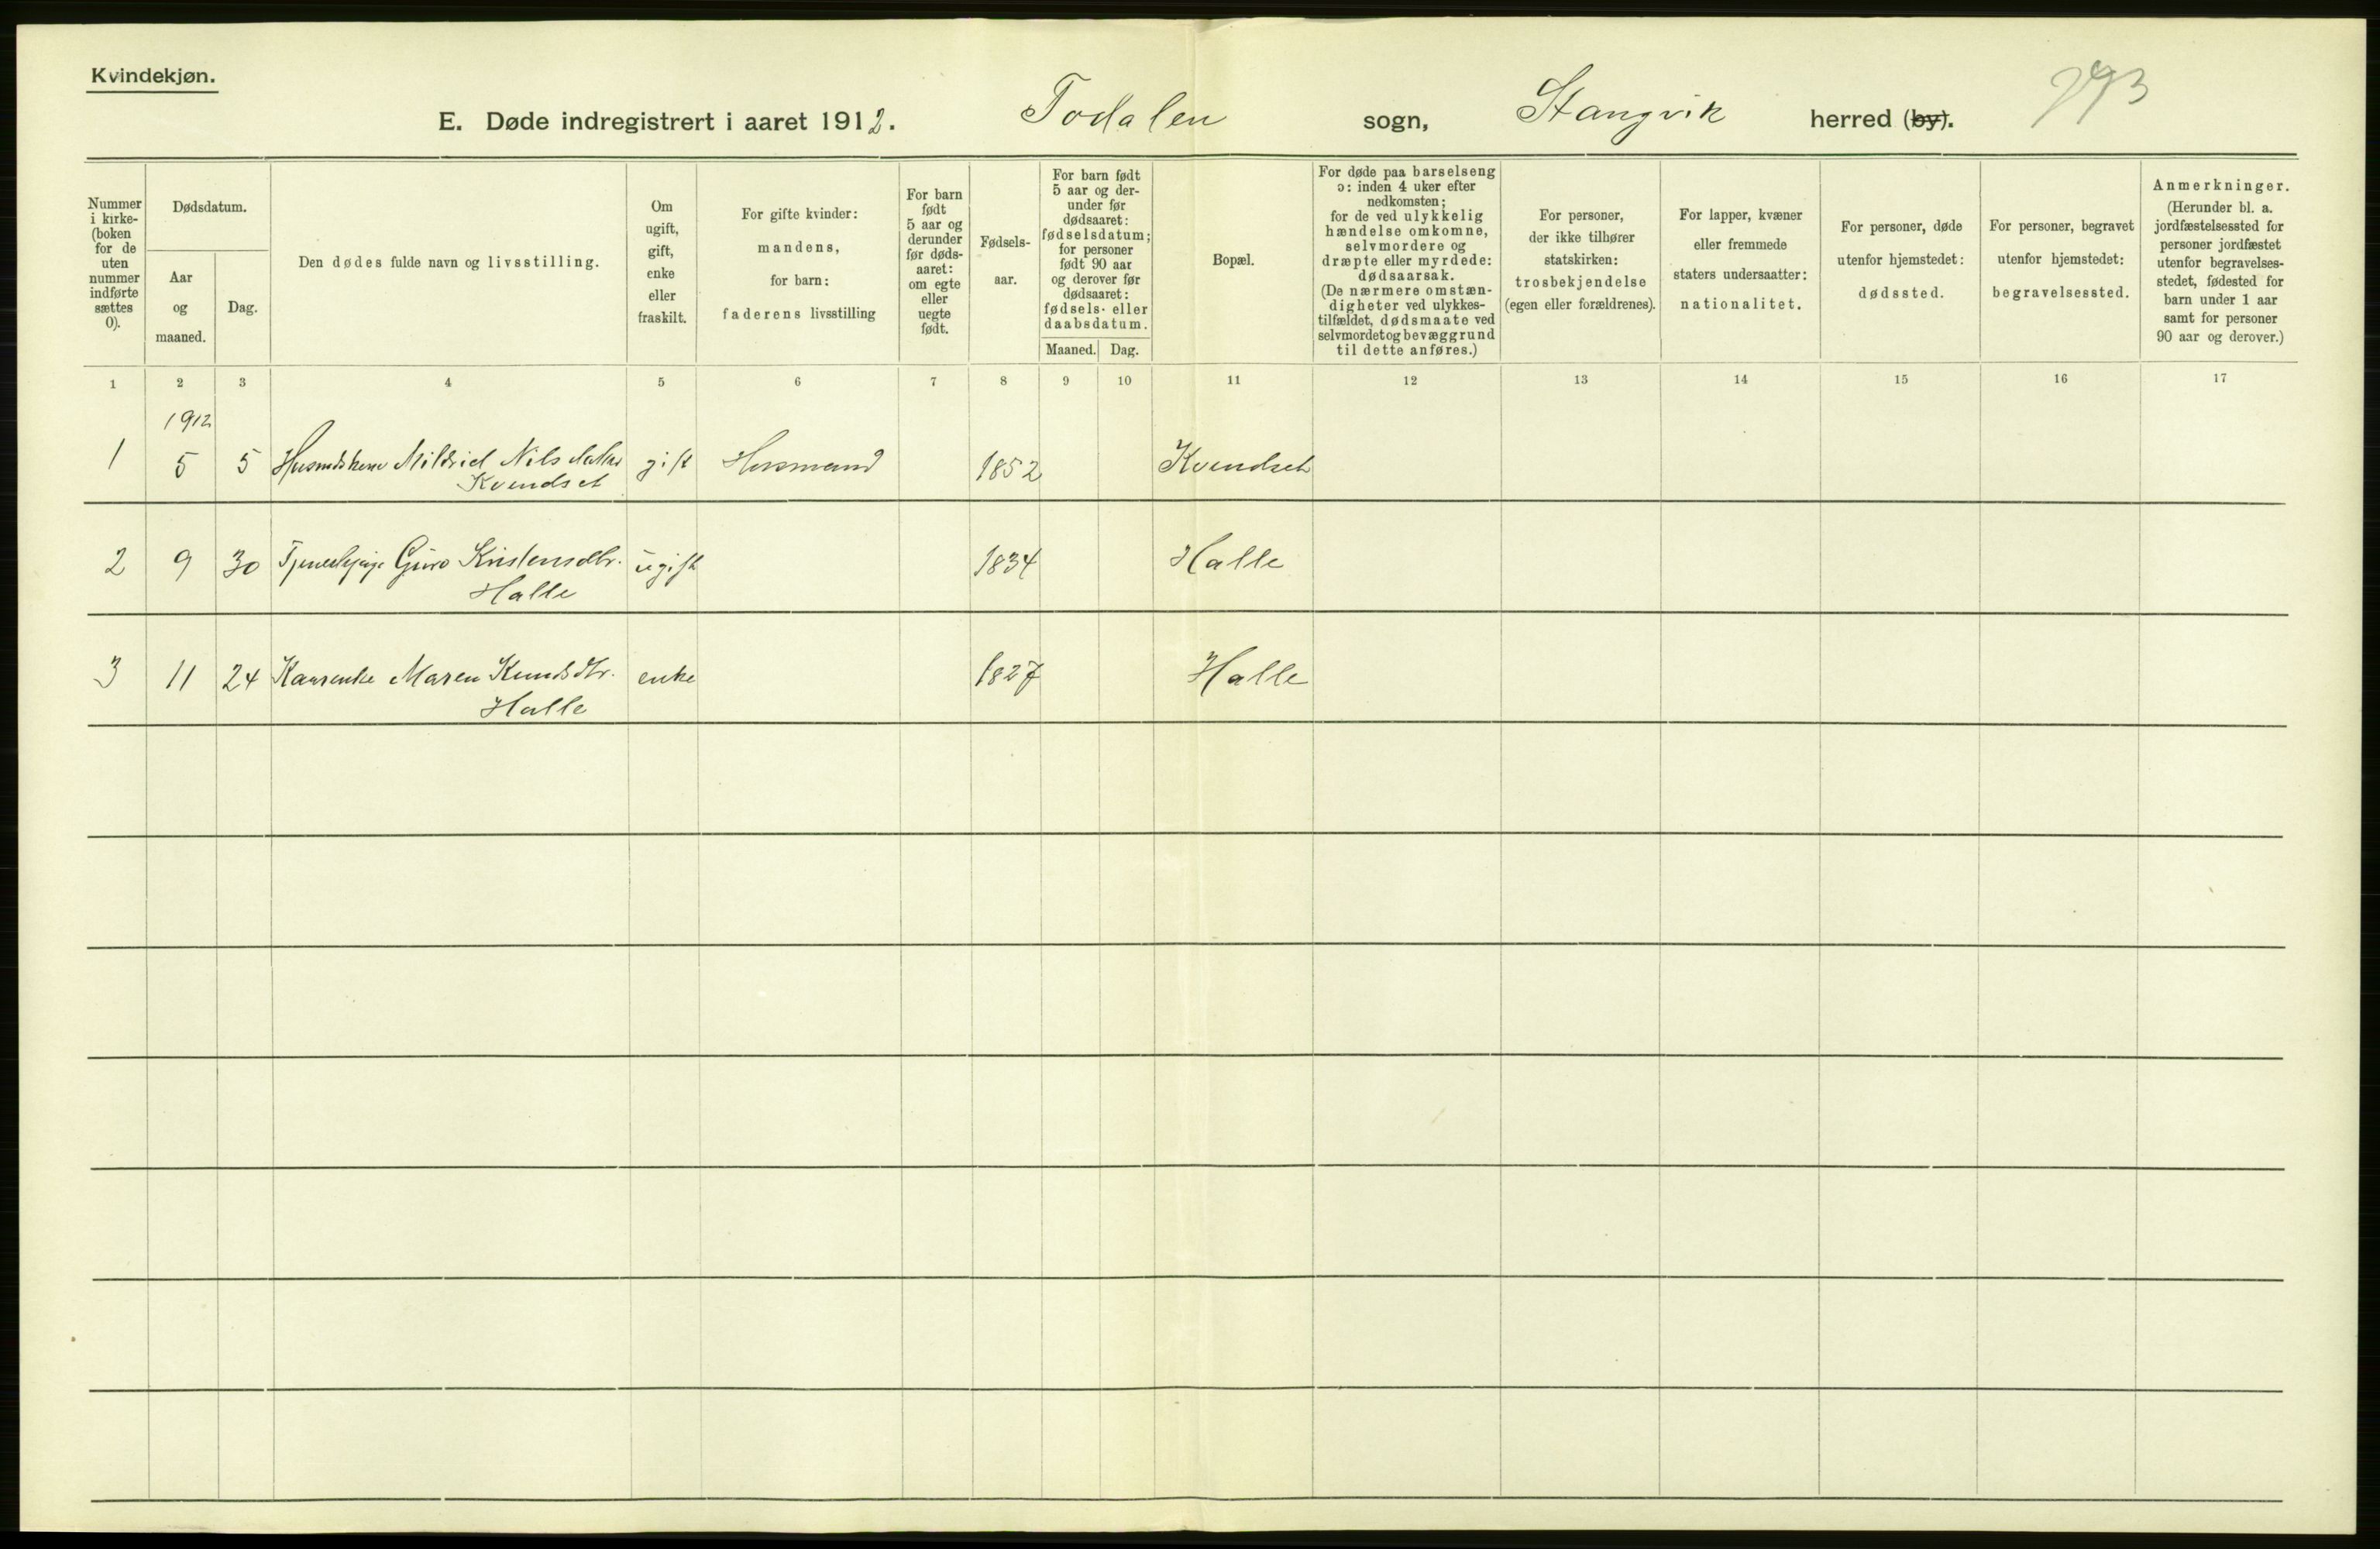 Kvindekjøn.
E. Døde indregistrert i aaret 1912. Todalen sogn, Stangvik herred (by). 293
Nummer i kirke- (boken for de uten nummer indførte sættes 0).
Dødsdatum.
Aar og maaned.
Dag.
Den dødes fulde navn og livsstilling.
Om ugift, gift, enke eller fraskilt.
For gifte kvinder: mandens, for barn: faderens livsstilling
For barn født 5 aar og derunder før døds- aaret: om egte eller uegte født.
Fødsels- aar.
For barn født 5 aar og der- under før dødsaaret: fødselsdatum; for personer født 90 aar og derover før dødsaaret: fødsels- eller daabsdatum.
Maaned. Dag.
Bopæl.
For døde paa barselseng ɔ: inden 4 uker efter nedkomsten; for de ved ulykkelig hændelse omkomne, selvmordere og dræpte eller myrdede: dødsaarsak. (De nærmere omstæn- digheter ved ulykkes- tilfældet, dødsmaate ved selvmordet og bevæggrund til dette anføres.)
For personer, der ikke tilhører statskirken: trosbekjendelse (egen eller forældrenes).
For lapper, kvæner eller fremmede staters undersaatter: nationalitet.
For personer, døde utenfor hjemstedet: dødssted.
For personer, begravet utenfor hjemstedet: begravelsessted.
Anmerkninger. (Herunder bl. a. jordfæstelsessted for personer jordfæstet utenfor begravelses- stedet, fødested for barn under 1 aar samt for personer 90 aar og derover.)
1 2 3 4 5 6 7 8 9 10 11 12 13 14 15 16 17
1912
1 5 5 Mildrid Nils gift Husmand 1852 Kvendset
Kvendset
2 9 30 Guro Kristensdtr. ugift 1834 Halle
Halle
3 11 24 Kaarenke Maren Knudsdtr. enke 1827 Halle
Halle